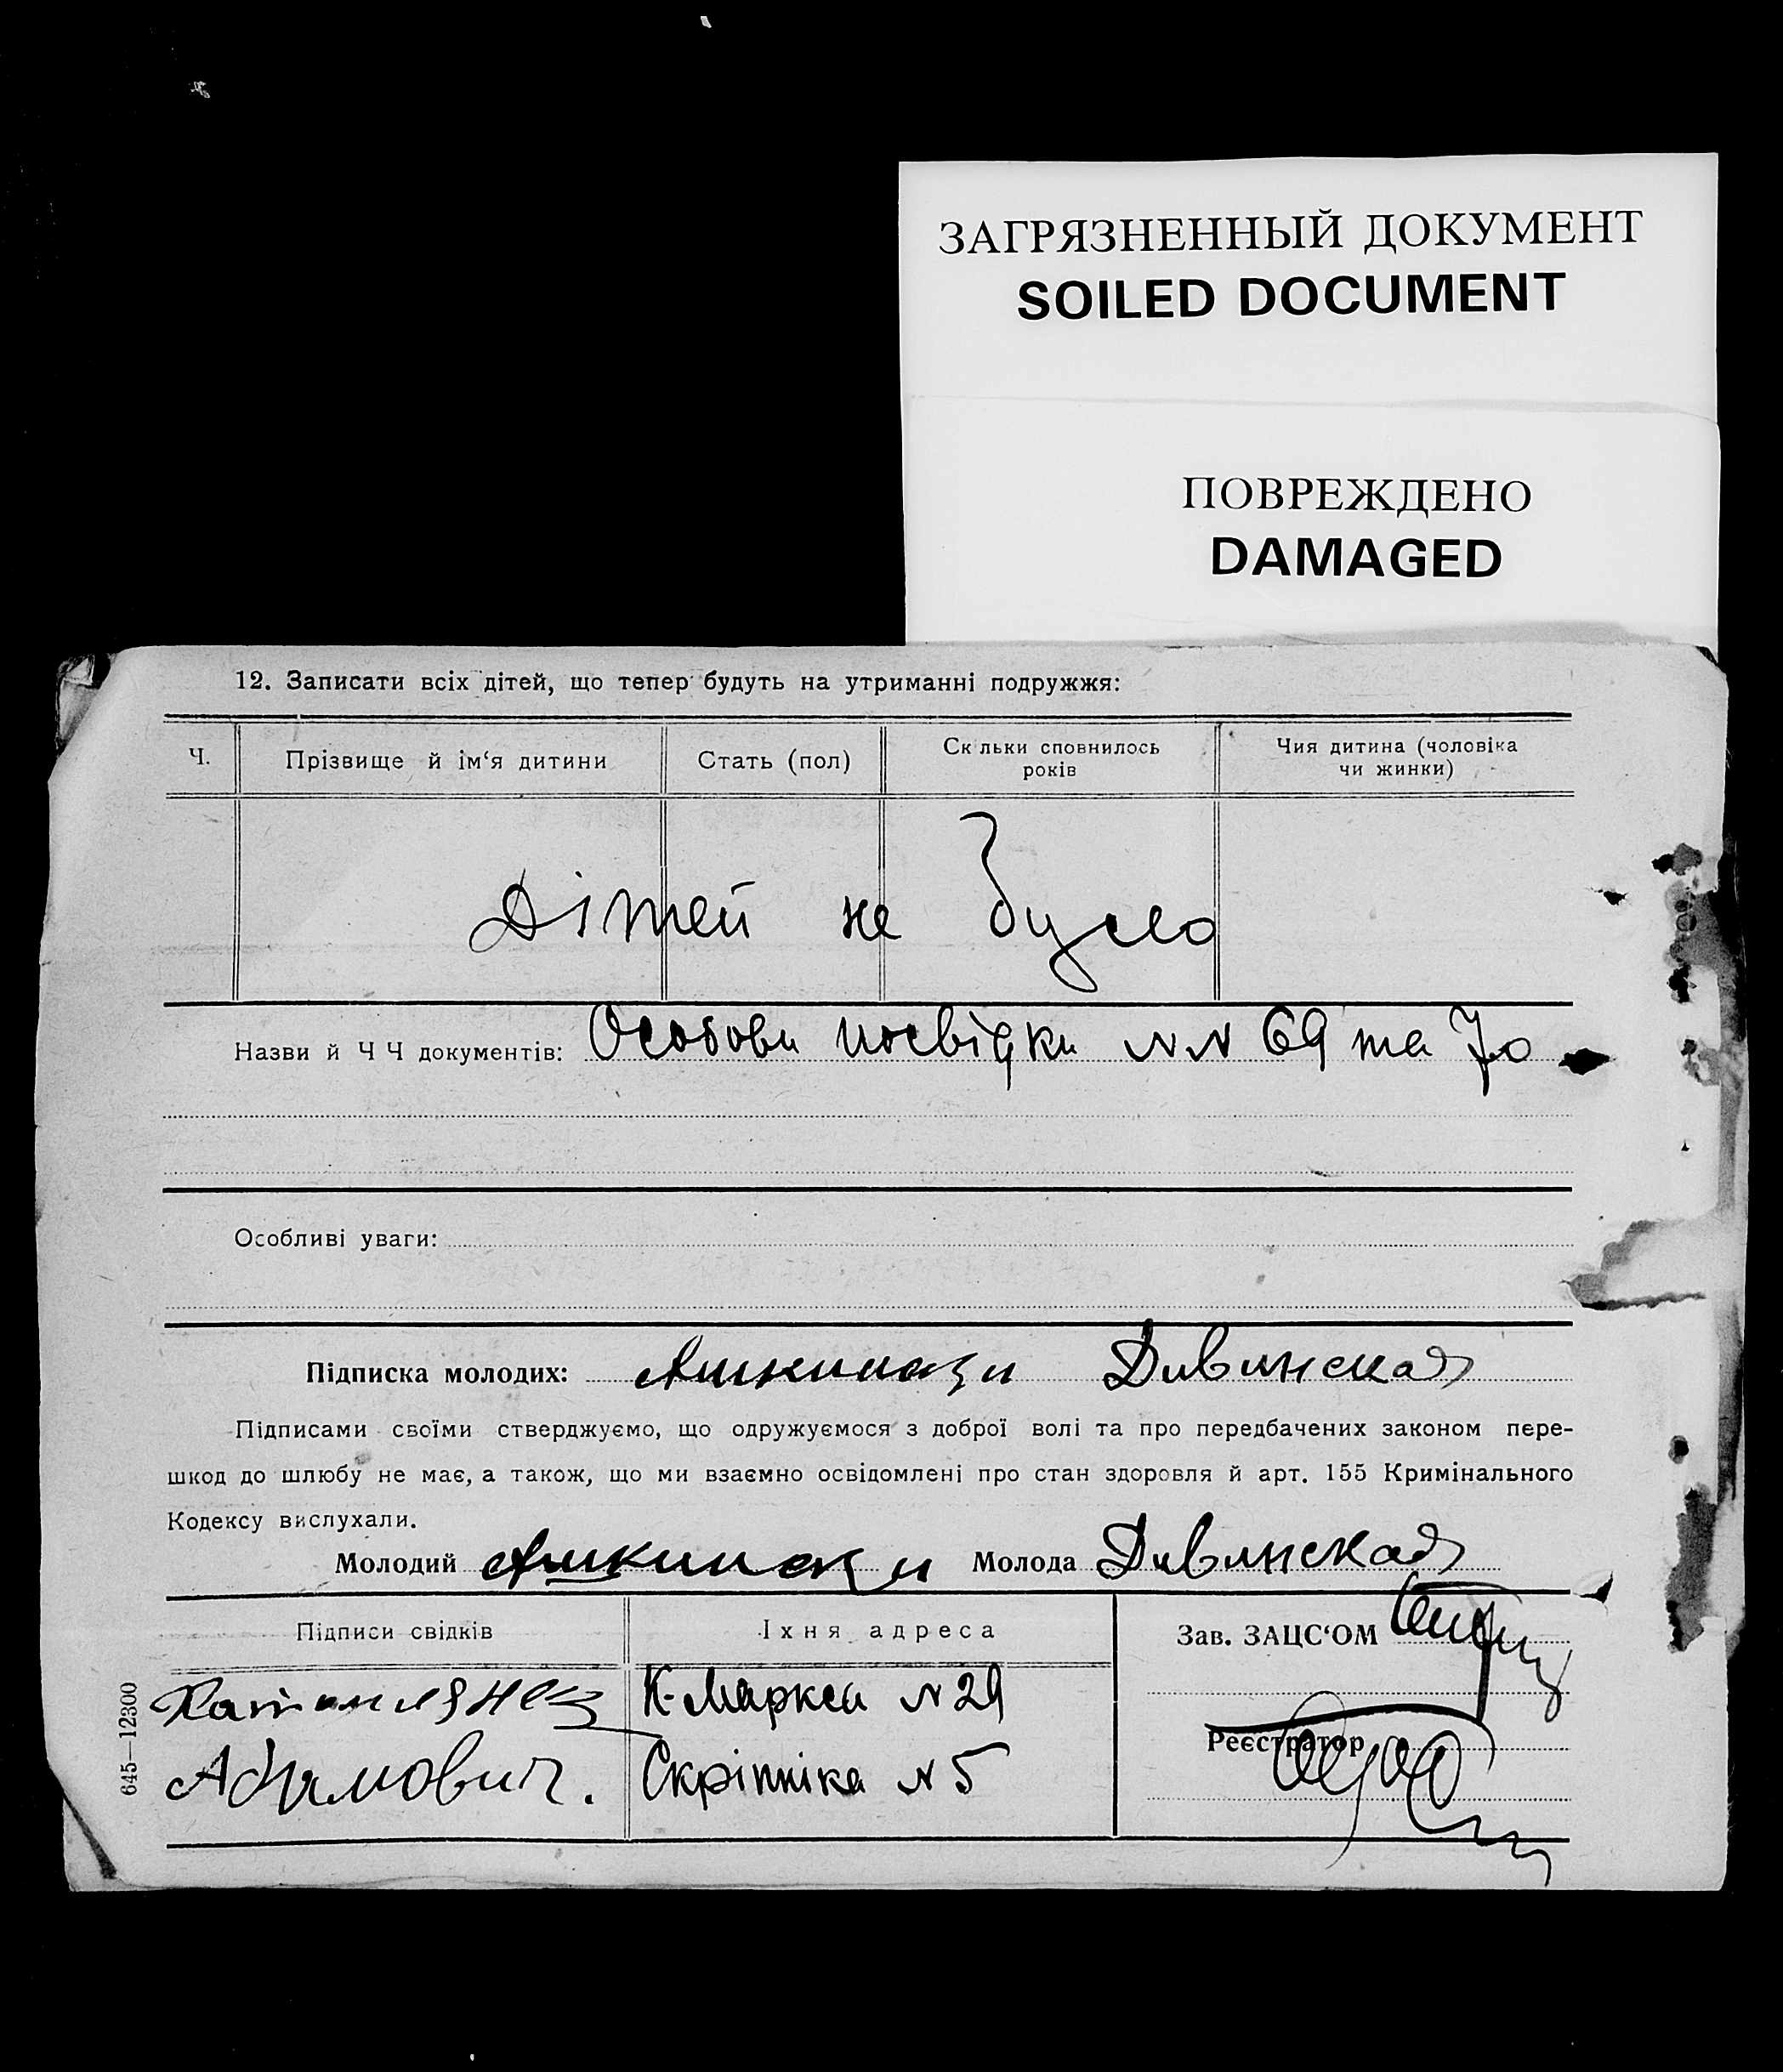 ЗАГРЯЗНЕННЫЙ ДОКУМЕНТ
SOILED DOCUMENT
ПОВРЕЖДЕНО
DAMAGED
12. Записати всіх дітей, що тепер будуть на утриманні подружжя:
Ч. Прізвище й ім‘я дитини Стать (пол) Скільки сповнилось років Чия дитина (чоловіка чи жинки)
Дітей не було
Назви й Ч Ч документів: Особови посвідки NN 69 та 70
Особливі уваги:
Підписка молодих: Ашкинази Дивинская
Підписами своїми стверджуємо, що одружуємося з доброї волі та про передбачених законом пере-
шкод до шлюбу не має, а також, що ми взаємно освідомлені про стан здоровля й арт. 155 Кримінального
Кодексу вислухали.
Молодий Ашкинази Молода Дивинская
Підписи свідків Їхня адреса Зав. ЗАЦС‘ОМ
К-Маркса N 29
Реєстратор
Скріпніка N 5
645—12300